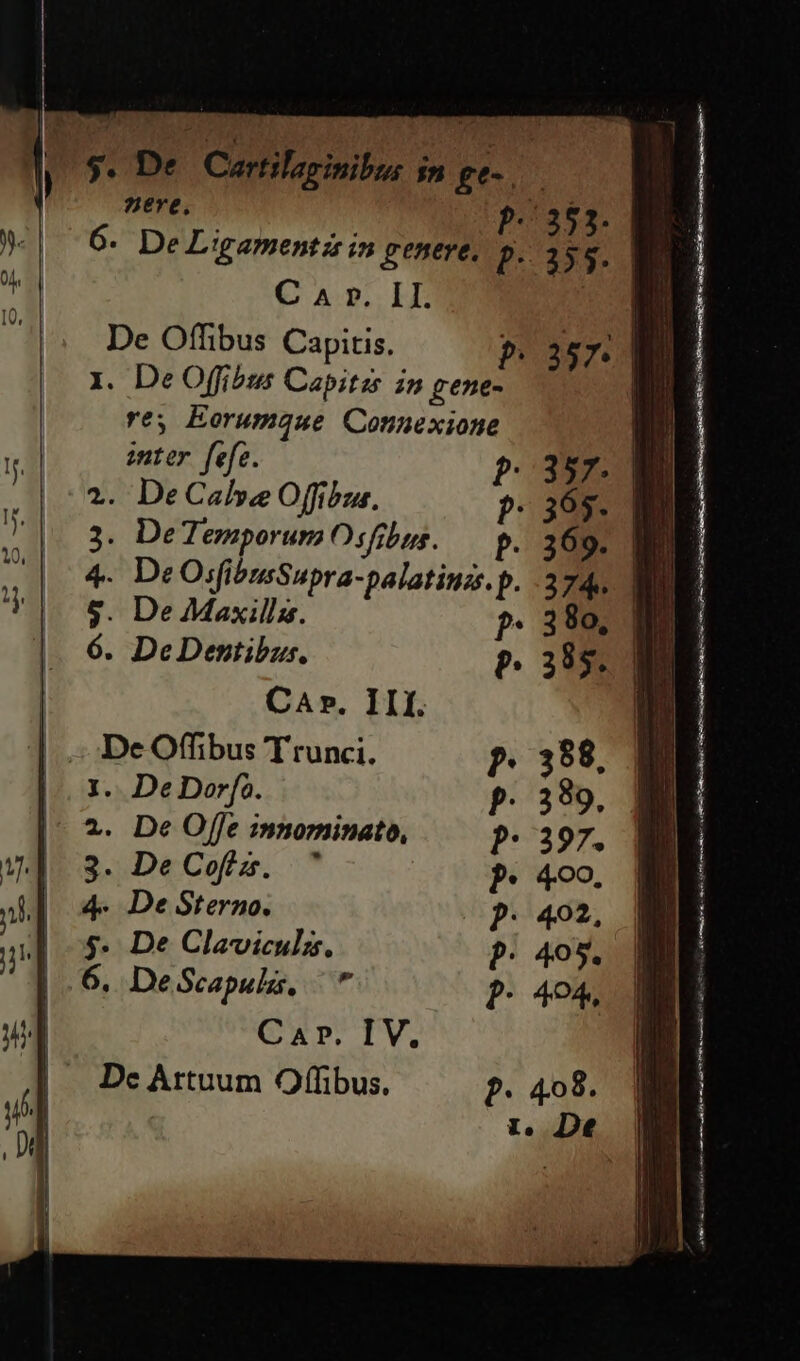 5. De Cartilaginibus in ge-
nere. p. 353.
6. De Ligamentis in genere. p. 355.
CAP. II.
De Ossibus Capitis. p. 357.
1. De Ossibus Capitis in gene-
re; Eorumque Connexione
inter sese. p. 357.
2. De Calvæ Ossibus. p. 365.
3. De Temporum Ossibus. p. 369.
4. De Ossibus Supra-palatinis. p. 374.
5. De Maxillis. p. 380,
6. De Dentibus. p. 385.
CAP. III.
De Ossibus Trunci. p. 388.
1. De Dorso. p. 389.
2. De Osse innominato, p. 397.
3. De Costis. p. 400,
4. De Sterno. p. 402,
5. De Claviculis. p. 405.
6. De Scapulis, p. 404,
CAP. IV.
De Artuum Ossibus. p. 408.
1. De